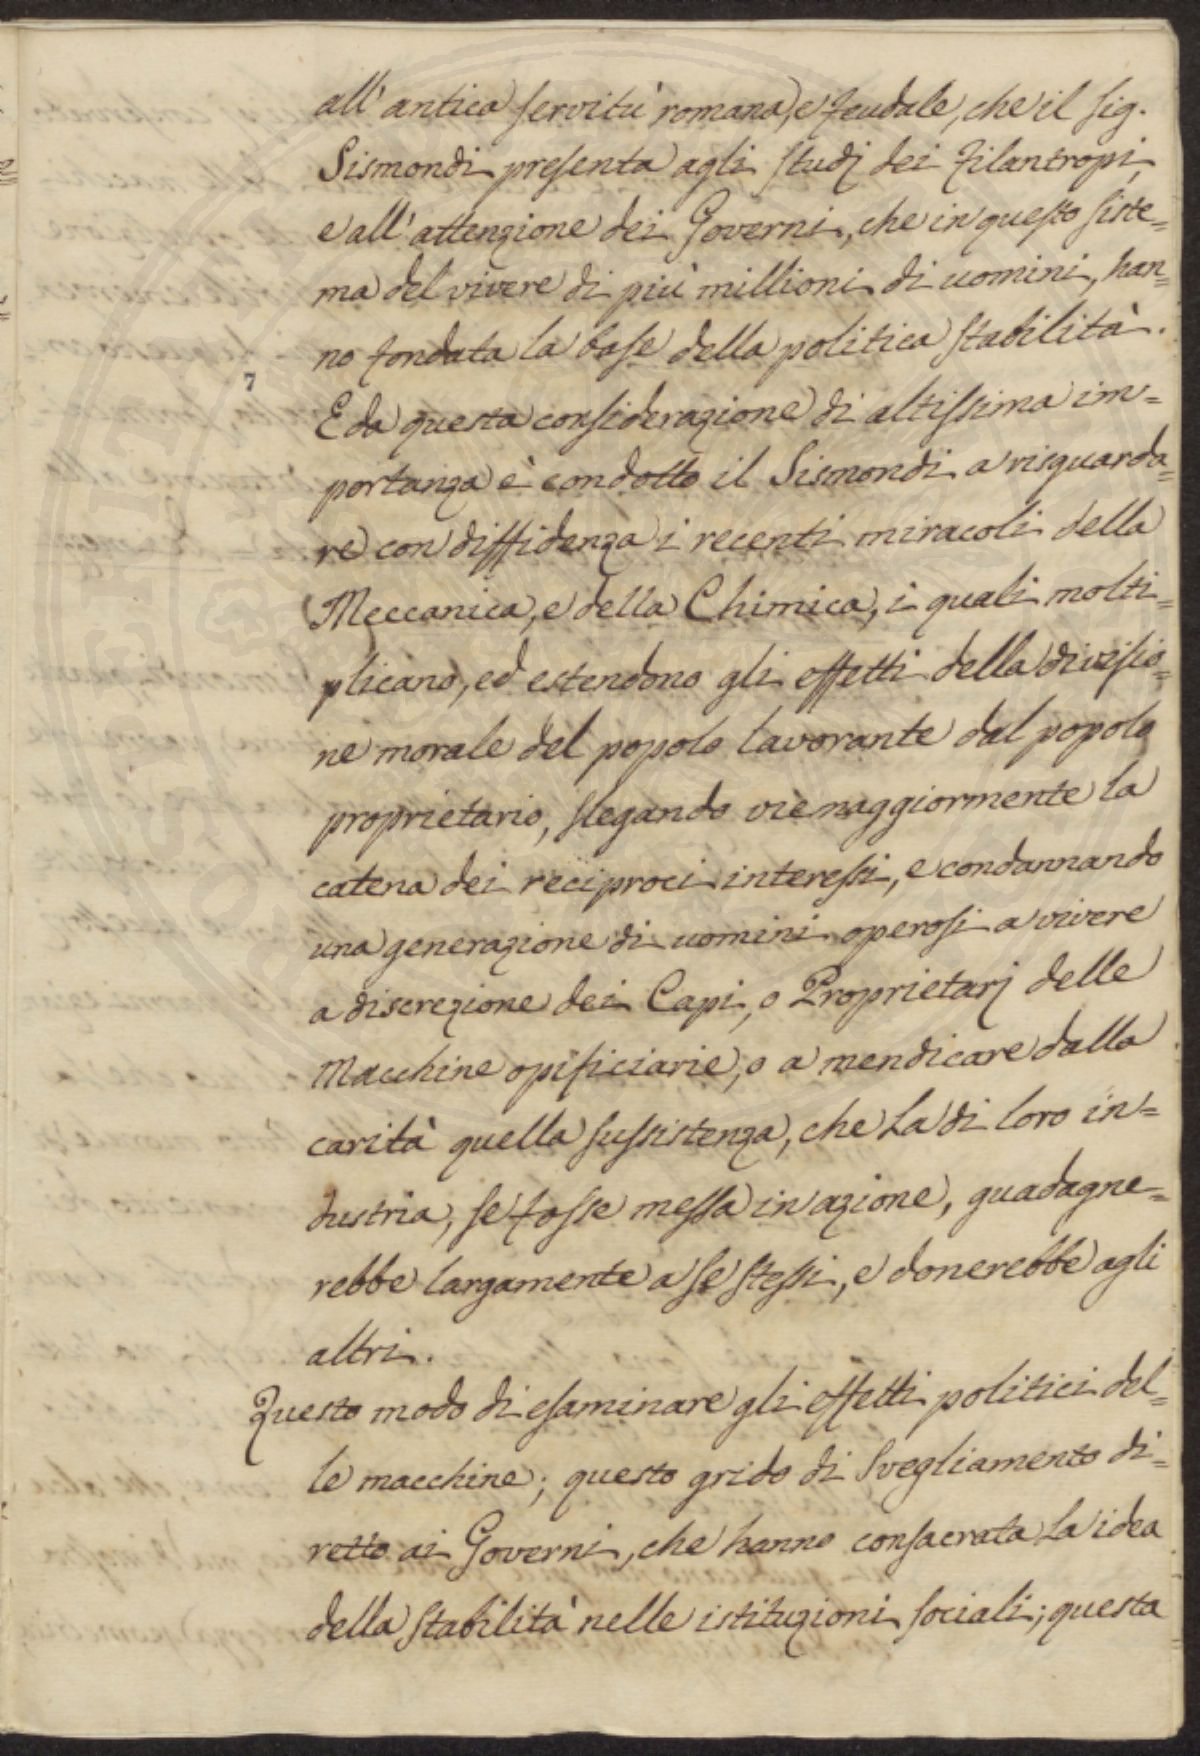 all'antica servitù romana, e feudale, che il sig.
Sismondi presenta agli studj dei Filantropi,
e all'attenzione dei Governi, che in questo siste=
ma del vivere di più millioni di uomini, han=
no fondata la base della politica stabilità.
7
E da questa considerazione di altissima im=
portanza è condotto il Sismondi a risguarda=
re con diffidenza i recenti miracoli della
Meccanica, e della Chimica, i quali molti=
plicano, ed estendono gli effetti della divisio=
ne morale del popolo lavorante dal popolo
proprietario, slegando viemaggiormente la
catena dei reciproci interessi, e condannando
una generazione di uomini operosi a vivere
a discrezione dei Capi, o Proprietarj delle
Macchine opificiarie, o a mendicare dalla
carità quella sussistenza, che la di loro in=
dustria, se fosse messa in azione, guadagne=
rebbe largamente a se stessi, e donerebbe agli
altri.
Questo modo di esaminare gli effetti politici del=
le macchine; questo grido di svegliamento di=
retto ai Governi, che hanno consacrata la idea
della stabilità nelle istituzioni sociali; questa